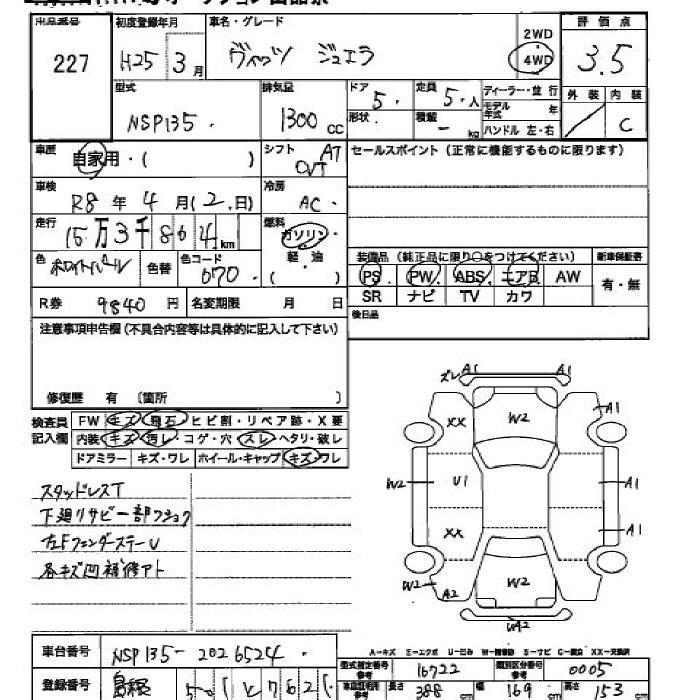 出品番号 初度登録年月 車名・グレード 評価点
227 H25年 3月 ヴィッツ ジュエラ 2WD 4WD 3.5
型式 排気量 ドア 定員 ディーラー・並行 外装 内装
NSP135 1300cc 5 5人 モデル年式 年 C
形状 積載 - kg ハンドル 左・右
車歴 自家用・( ) シフト AT CVT セールスポイント(正常に機能するものに限ります)
車検 R8年4月(2日) 冷房 AC
走行 15万3千864km 燃料 ガソリン・軽油 ( )
色 ホワイトパール 色替 色コード 070 装備品(純正品に限り○をつけてください) 新車保証書
PS PW ABS エアB AW 有・無
R券 9840円 名変期限 月 日 SR ナビ TV カワ
注意事項申告欄(不具合内容等は具体的に記入して下さい) 後日品
修復歴 有 〔箇所 〕
検査員記入欄 FW キズ・飛石・ヒビ割・リペア跡・X要
内装 キズ・汚レ・コゲ・穴・スレ・ヘタリ・破レ
ドアミラー キズ・ワレ ホイール・キャップ キズ・ワレ
スタッドレスT
下廻リサビ一部フショク
左FフェンダーステーU
各キズ凹補修アト
ズレ A1 A1
XX W2 A1
W2 U1 A1
XX A1
W2 A2 W2
W42
A-キズ E-エクボ U-凹み W-補修跡 S-サビ C-腐食 XX-交換済
車台番号 NSP135-2026524 型式指定番号 参考 16722 類別区分番号 参考 0005
登録番号 島根 501 と 762 車庫証明用 参考 長さ 388cm 幅 169cm 高さ 153cm